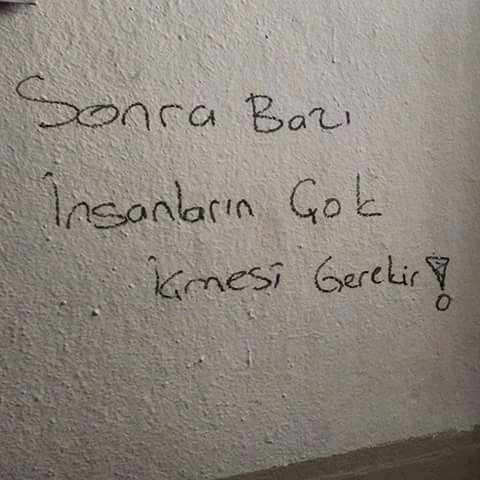 Sonra Bazı
İnsanların Çok
İçmesi Gerekir!